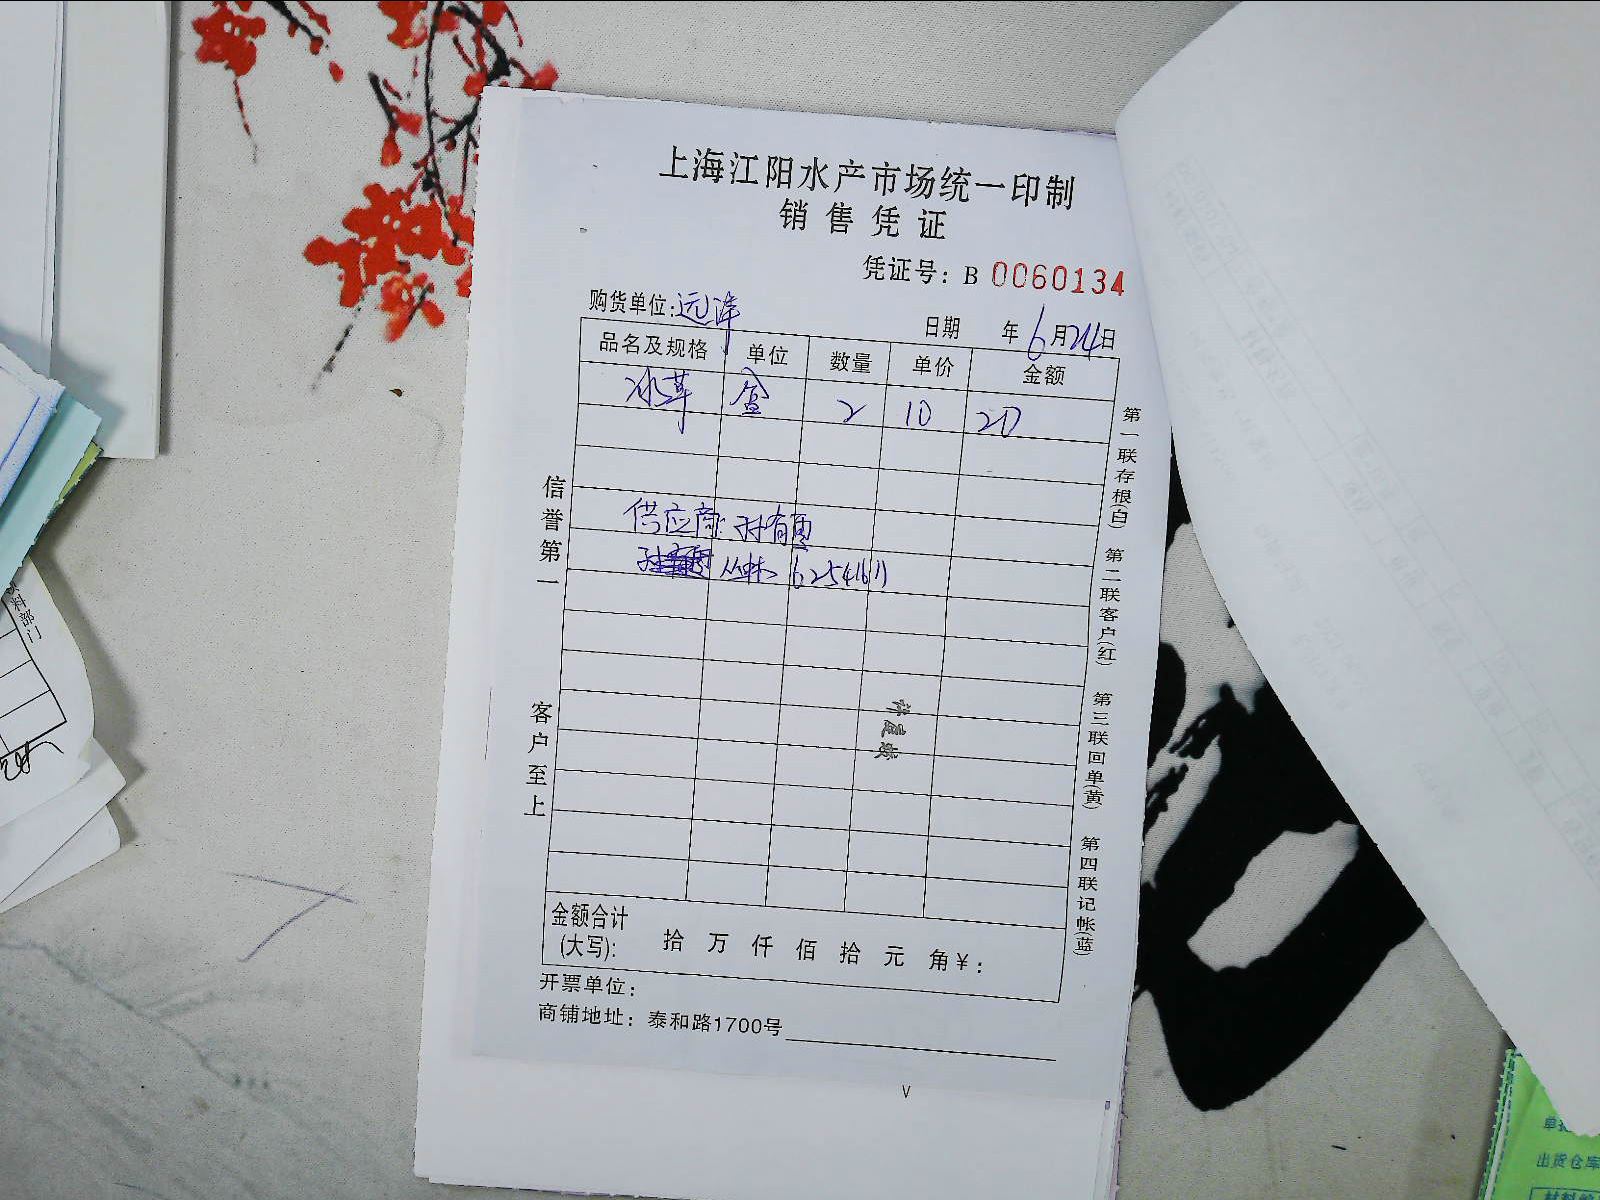 上海江阳水产市场统一印制
销售凭证
凭证号：B 0060134
购货单位:远洋
日期 年6月24日
品名及规格 单位 数量 单价 金额
冰草 盒 2 10 20
供应商:
6254161
信誉第一
客户至上
第一联存根(白) 第二联客户(红) 第三联回单(黄) 第四联记帐(蓝)
金额合计
(大写): 拾 万 仟 佰 拾 元 角 ¥:
开票单位：
商铺地址：泰和路1700号
V
料部门
出货仓库